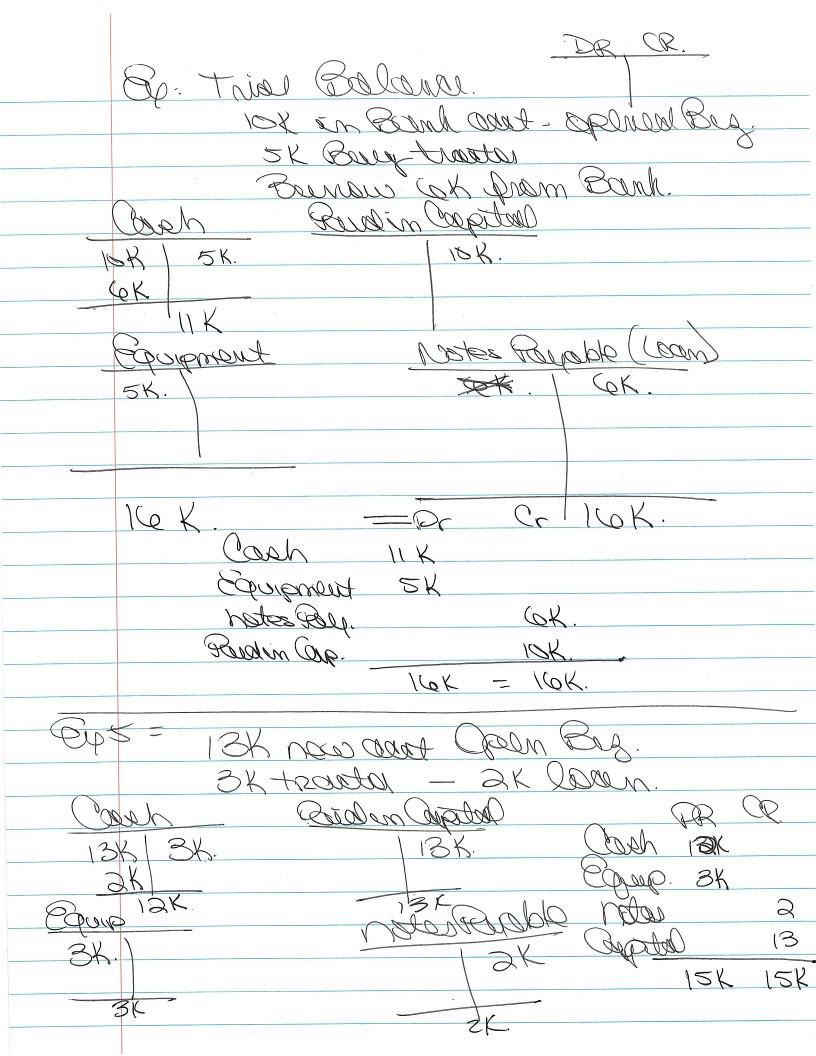 DR CR.
Ex: Trial Balance.
10K in Bank acct - opened Biz.
5K Buy tractor
Borrow 6K from Bank.
Cash Paid in Capital
10K 5K. 10K.
6K
11K
Equipment Notes Payable (Loan)
5K. 6K. 6K.
16K. = Dr Cr 16K.
Cash 11K
Equipment 5K
Notes Pay. 6K.
Paid in Cap. 10K.
16K = 16K.
Ex 5 = 13K new acct Open Biz.
3K tractor - 2K loan.
Cash Paid in Capital DR CR
13K 3K. 13K. Cash 12K
2K Equip. 3K
12K. 13K notes 2
Equip Notes Payable Capital 13
3K. 2K 15K 15K
3K 2K